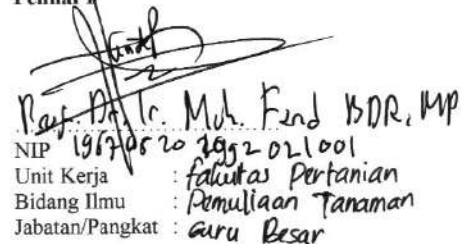 Penilai I
Prof. Dr. Ir. Muh. Farid BDR, MP
NIP 19670520 199202 1 001
Unit Kerja : fakultas Pertanian
Bidang Ilmu : Pemuliaan Tanaman
Jabatan/Pangkat : Guru Besar